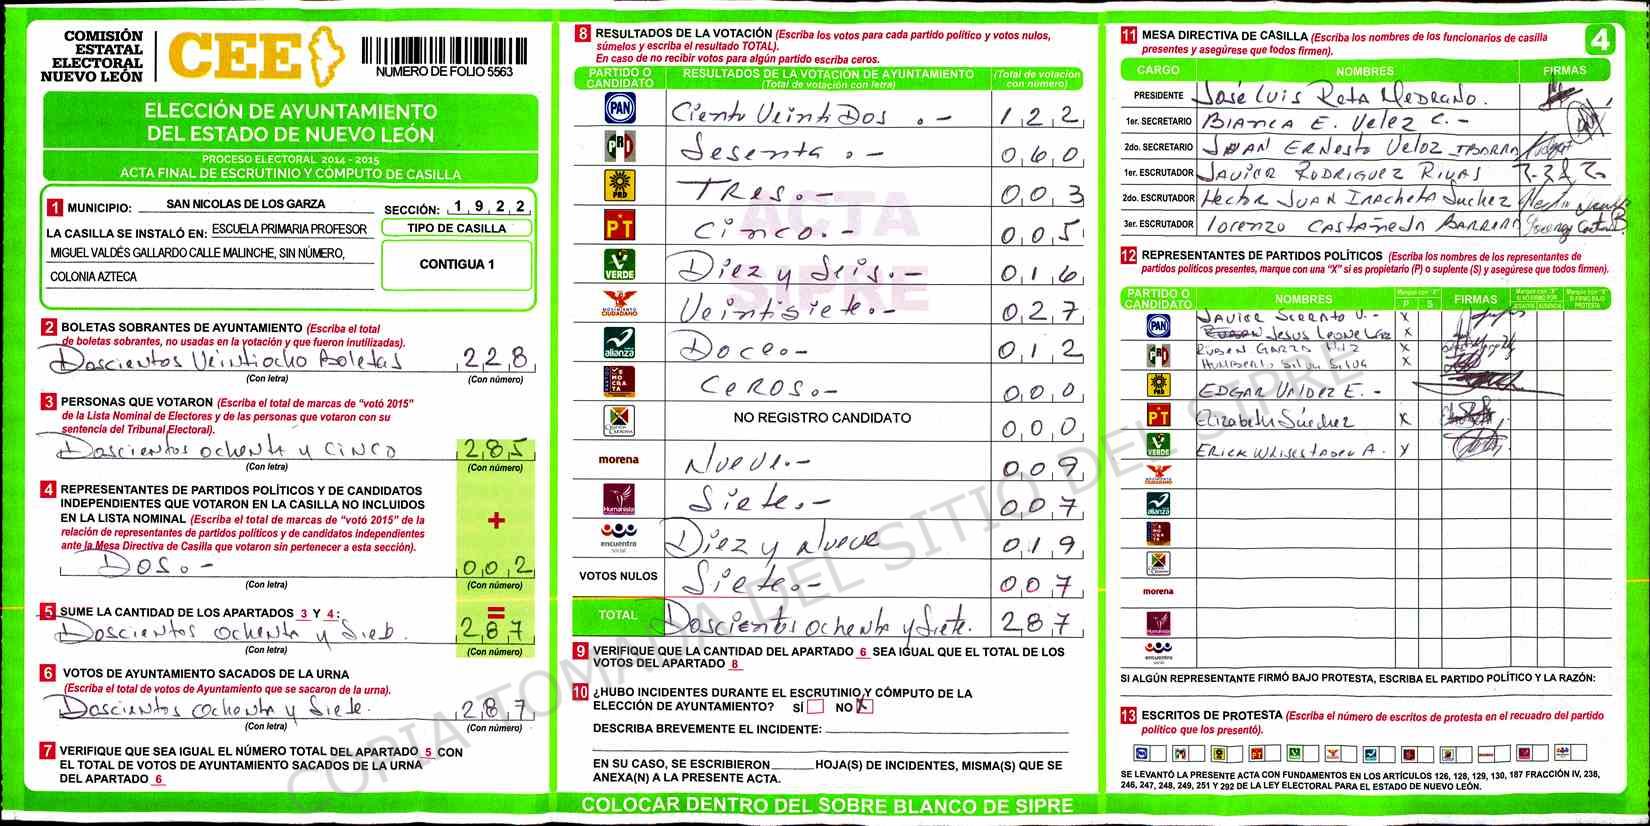 COMISIÓN
ESTATAL
ELECTORAL
NUEVO LEÓN
CEE
NUMERO DE FOLIO 5563
ELECCIÓN DE AYUNTAMIENTO
DEL ESTADO DE NUEVO LEÓN
PROCESO ELECTORAL 2014 - 2015
ACTA FINAL DE ESCRUTINIO Y CÓMPUTO DE CASILLA
1 MUNICIPIO: SAN NICOLAS DE LOS GARZA SECCIÓN: 1 9 2 2
LA CASILLA SE INSTALÓ EN: ESCUELA PRIMARIA PROFESOR
MIGUEL VALDÉS GALLARDO CALLE MALINCHE, SIN NÚMERO,
COLONIA AZTECA
TIPO DE CASILLA
CONTIGUA 1
2 BOLETAS SOBRANTES DE AYUNTAMIENTO (Escriba el total
de boletas sobrantes, no usadas en la votación y que fueron inutilizadas).
Doscientos Veintiocho Boletas 2 2 8
(Con letra) (Con número)
3 PERSONAS QUE VOTARON (Escriba el total de marcas de "votó 2015"
de la Lista Nominal de Electores y de las personas que votaron con su
sentencia del Tribunal Electoral).
Doscientos ochenta y cinco 2 8 5
(Con letra) (Con número)
4 REPRESENTANTES DE PARTIDOS POLÍTICOS Y DE CANDIDATOS
INDEPENDIENTES QUE VOTARON EN LA CASILLA NO INCLUIDOS
EN LA LISTA NOMINAL (Escriba el total de marcas de "votó 2015" de la
relación de representantes de partidos políticos y de candidatos independientes
ante la Mesa Directiva de Casilla que votaron sin pertenecer a esta sección).
+
Dos.- 0 0 2
(Con letra) (Con número)
=
5 SUME LA CANTIDAD DE LOS APARTADOS 3 Y 4:
Doscientos ochenta y Siete. 2 8 7
(Con letra) (Con número)
6 VOTOS DE AYUNTAMIENTO SACADOS DE LA URNA
(Escriba el total de votos de Ayuntamiento que se sacaron de la urna).
Doscientos ochenta y Siete. 2 8 7
(Con letra) (Con número)
7 VERIFIQUE QUE SEA IGUAL EL NÚMERO TOTAL DEL APARTADO 5 CON
EL TOTAL DE VOTOS DE AYUNTAMIENTO SACADOS DE LA URNA
DEL APARTADO 6
8 RESULTADOS DE LA VOTACIÓN (Escriba los votos para cada partido político y votos nulos,
súmelos y escriba el resultado TOTAL).
En caso de no recibir votos para algún partido escriba ceros.
PARTIDO O CANDIDATO RESULTADOS DE LA VOTACIÓN DE AYUNTAMIENTO (Total de votación con letra) (Total de votación con número)
PAN Ciento Veinti Dos .- 1 2 2
PRD Sesenta .- 0 6 0
PRD Tres.- 0 0 3
PT Cinco.- 0 0 5
VERDE Diez y Seis.- 0 1 6
MOVIMIENTO CIUDADANO Veintisiete.- 0 2 7
alianza Doce.- 0 1 2
DEMOCRATA Ceros.- 0 0 0
CRUZADA CIUDADANA NO REGISTRO CANDIDATO 0 0 0
morena Nueve.- 0 0 9
Humanista Siete.- 0 0 7
encuentro social Diez y Nueve 0 1 9
VOTOS NULOS Siete.- 0 0 7
TOTAL Doscientos ochenta y Siete. 2 8 7
ACTA
SIPRE
9 VERIFIQUE QUE LA CANTIDAD DEL APARTADO 6 SEA IGUAL QUE EL TOTAL DE LOS
VOTOS DEL APARTADO 8
10 ¿HUBO INCIDENTES DURANTE EL ESCRUTINIO Y CÓMPUTO DE LA
ELECCIÓN DE AYUNTAMIENTO? SÍ NO X
DESCRIBA BREVEMENTE EL INCIDENTE:
EN SU CASO, SE ESCRIBIERON HOJA(S) DE INCIDENTES, MISMA(S) QUE SE
ANEXA(N) A LA PRESENTE ACTA.
COLOCAR DENTRO DEL SOBRE BLANCO DE SIPRE
11 MESA DIRECTIVA DE CASILLA (Escriba los nombres de los funcionarios de casilla
presentes y asegúrese que todos firmen).
4
CARGO NOMBRES FIRMAS
PRESIDENTE José Luis Reta Medrano.
1er. SECRETARIO Bianca E. Velez C.-
2do. SECRETARIO Juan Ernesto Veloz Ibarra
1er. ESCRUTADOR Javier Rodriguez Rivas
2do. ESCRUTADOR Hector Juan Iracheta Suchez
3er. ESCRUTADOR Lorenzo Castañeda Barrera
12 REPRESENTANTES DE PARTIDOS POLÍTICOS (Escriba los nombres de los representantes de
partidos políticos presentes, marque con una "X" si es propietario (P) o suplente (S) y asegúrese que todos firmen).
PARTIDO O CANDIDATO NOMBRES Marque con "X" P S FIRMAS
PAN Javier Serrato V.- X
Jesus Leone X
PRD Ruben Garza X
Humberto Silva Silva X
PRD Edgar Valdez E.-
PT Elizabeth Sánchez X
VERDE Erick A. X
MOVIMIENTO CIUDADANO
alianza
morena
Humanista
encuentro social
SI ALGÚN REPRESENTANTE FIRMÓ BAJO PROTESTA, ESCRIBA EL PARTIDO POLÍTICO Y LA RAZÓN:
13 ESCRITOS DE PROTESTA (Escriba el número de escritos de protesta en el recuadro del partido
político que los presentó).
SE LEVANTÓ LA PRESENTE ACTA CON FUNDAMENTOS EN LOS ARTÍCULOS 126, 128, 129, 130, 187 FRACCIÓN IV, 238,
246, 247, 248, 249, 251 Y 292 DE LA LEY ELECTORAL PARA EL ESTADO DE NUEVO LEÓN.
COPIA TOMADA DEL SITIO DEL SIPRE